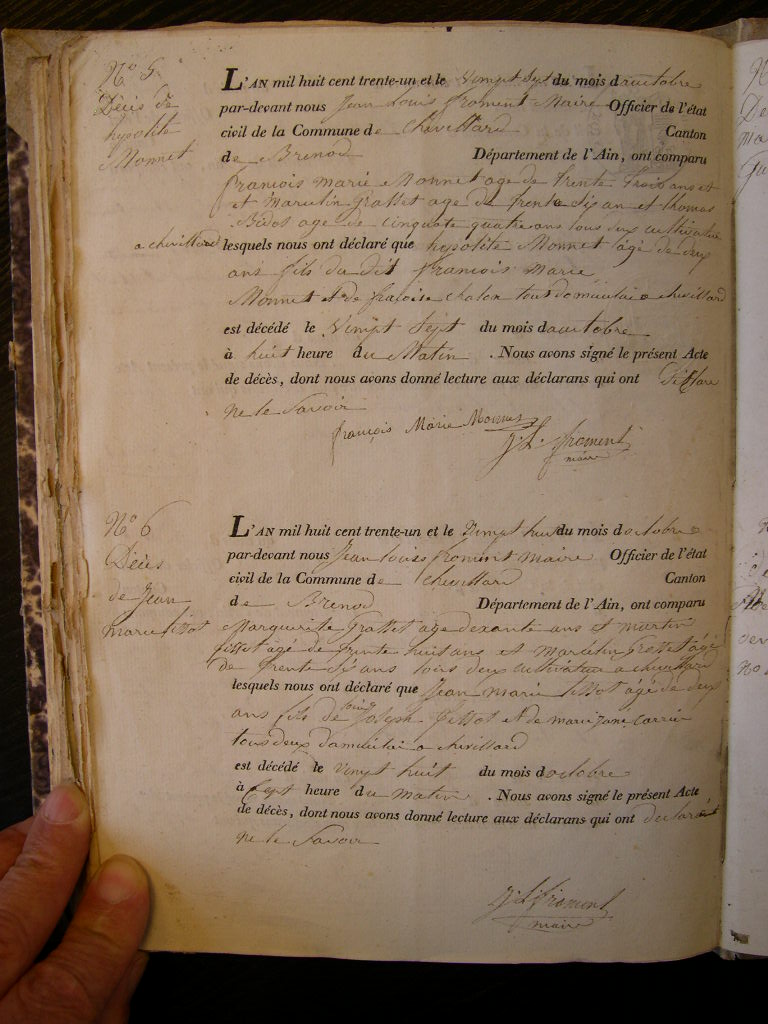 N° 5
Décis de
hypolite
Monnet
L'AN mil huit cent trente-un et le Vingt Sept du mois d'auctobre
par-devant nous Jean Louis froment Maire Officier de l'état
civil de la Commune de Chevillard Canton
de Brenod Département de l'Ain, ont comparu
francois marie Monnet age de trente trois ans et
et marculin Grosset age de trente six an et thomas
Bidot age de cinquate quatre ans tous deux cultivature
a chevillard lesquels nous ont déclaré que hypolite Monnet agé de deux
ans fils du dit francois marie
Monnet et de françoise chalon tous domicilié a chevillard
est décédé le Vingt Sept du mois d'auctobre
à huit heure du Matin . Nous avons signé le présent Acte
de décès, dont nous avons donné lecture aux déclarans qui ont
ne le Savoir
françois Marie Monnet
J. L. froment
maire
N° 6
Décès
de Jean
marie fittot
L'AN mil huit cent trente-un et le Vingt huit du mois d'octobre
par-devant nous Jean louis froment maire Officier de l'état
civil de la Commune de Chevillard Canton
de Brenod Département de l'Ain, ont comparu
Marguerite Grosset age de ans et martin
fittot agé de trente huit ans et marculin Grosset agé
de trente six ans tous deux cultivature a chevillard
lesquels nous ont déclaré que Jean marie fittot agé de deux
ans fils de Joseph fittot et de marie Jane Carrier
tous deux domicilié a chevillard
est décédé le vingt huit du mois d'octobre
à Sept heure du matin . Nous avons signé le présent Acte
de décès, dont nous avons donné lecture aux déclarans qui ont declaré
ne le Savoir
J. L. froment
maire